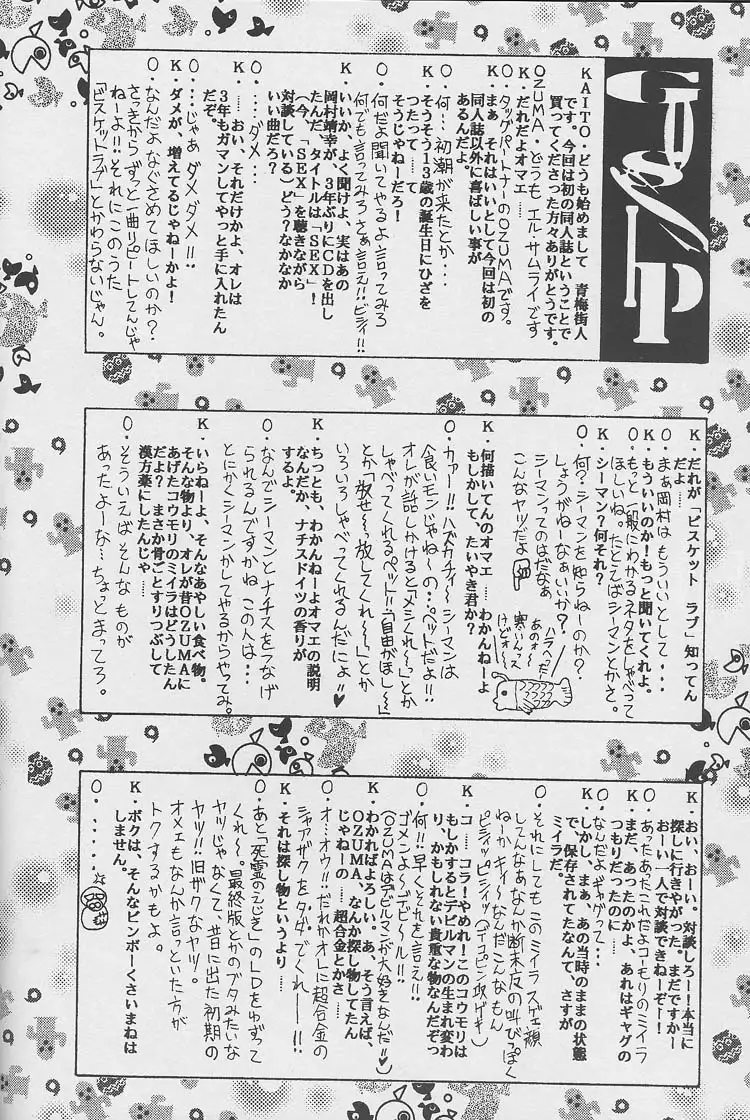 KAITO・どうも始めまして 青梅街人
です。今回は初の同人誌ということで
買ってくださった方々ありがとうです。
OZUMA・どうも エル・サムライです
K・だれだよオマエ……
O・タッグパートナーのOZUMAです。
K・まぁ、それはいいとして今回は初の
同人誌以外に喜ばしい事が
あるんだよ。
O・何…初潮が来たとか…
K・そうそう13歳の誕生日にひざを
つたって……て
そうじゃねーだろ!
O・何だよ聞いてやるよ言ってみろ
何でも言ってみろさぁ言え!!ビシィ!!
K・いいか、よく聞けよ、実はあの
岡村靖幸が、3年ぶりにCDを出し
たんだ、タイトルは「SEX」!
(今、「SEX」を聴きながら
対談している)どう?なかなか
いい曲だろ?
O・……ダメ…
K・……おい、それだけかよ、オレは
3年もガマンしてやっと手に入れたん
だぞ。
O・……じゃあ ダメダメ!!
K・ダメが、増えてるじゃねーかよ!
O・なんだよなぐさめてほしいのか?
さっきからずっと一曲リピートしてんじゃ
ねーよ!!それにこのうた
「ビスケットラブ」とかわらないじゃん。
K・だれが「ビスケット ラブ」知ってん
だよ……
O・まぁ岡村はもういいとして・・・
K・もういいのか!もっと聞いてくれよ。
O・もっと一般にわかるネタをしゃべって
ほしいね。たとえばシーマンとかさ。
K・シーマン?何それ?
O・何?シーマンを知らねーのか?
しょうがねーなぁいいか?
シーマンってのはだなぁ
こんなヤツだよ
ハラへった…
あのォ…
寒いんっスけどォ…
K・何描いてんのオマエ……わかんねーよ
もしかして、たいやき君か?
O・カァー!!ハズカチィ〜シーマンは
食いモンじゃね〜の…ペットだよ!!
オレが話しかけると「メシくれ〜」とか
しゃべってくれるペット!!「自由がほし〜」
とか「放せ〜放してくれ〜」とか
いろいろしゃべってくれるんだにょ!!♥
K・ちっとも、わかんねーよオマエの説明
なんだか、ナチスドイツの香りが
するよ。
O・なんでシーマンとナチスをつなげ
られるんですかね この人は…
とにかくシーマンかしてやるからやってみ。
K・いらねーよ、そんなあやしい食べ物。
そんな物より、オレが昔OZUMAに
あげたコウモリのミイラはどうしたん
だよ? まさか骨ごとすりつぶして
漢方薬にしたんじゃ……
O・そういえば そんな ものが
あったよーな…ちょっとまってろ。
K・おい、おーい。対談しろー!本当に
探しに行きやがった。まだですかー
おーい一人で対談できねーぞー!
O・あったあたこれだよコーモリのミイラ
K・まだ、あったのかよ。あれはギャグの
つもりだったのに……
O・なんだよギャグがって…
K・しかし、まぁ、あの当時のままの状態
で、保存されてたなんて、さすが
ミイラだ。
O・それにしても このミイラ スゲェ顔
してんなぁなんか断末度の叫びっぽく
ねーかキィ〜なんだこんなもん
ピシィッピシィッ(デコピン攻ゲキ)
K・コ……コラ!やめれ!このコウモリは
もしかするとデビルマンの生まれ変わ
り、かもしれない貴重な物なんだぞっ
O・何!!早くそれを言え!!
ゴメンよ〜デビ〜ル!!
(OZUMAはデビルマンが大好きなんだ!!♥)
K・わかればよろしい。あ、そう言えば、
OZUMA、なんか探し物してたん
じゃねーの……超合金とかさ。
O・オ…オウ!!だれかオレに超合金の
シャアザクをタダでくれ———!!
K・それは探し物というより……
O・あと「死霊のえじき」のLDをゆずって
くれ〜。最終版とかのブタみたいな
ヤツじゃなくて、昔に出た初期の
ヤツ!!旧ザクなヤツ!。
オメェもなんか言っといた方が
トクするかもよ。
K・ボクは、そんなビンボーくさいまねは
しません。
O・……☆